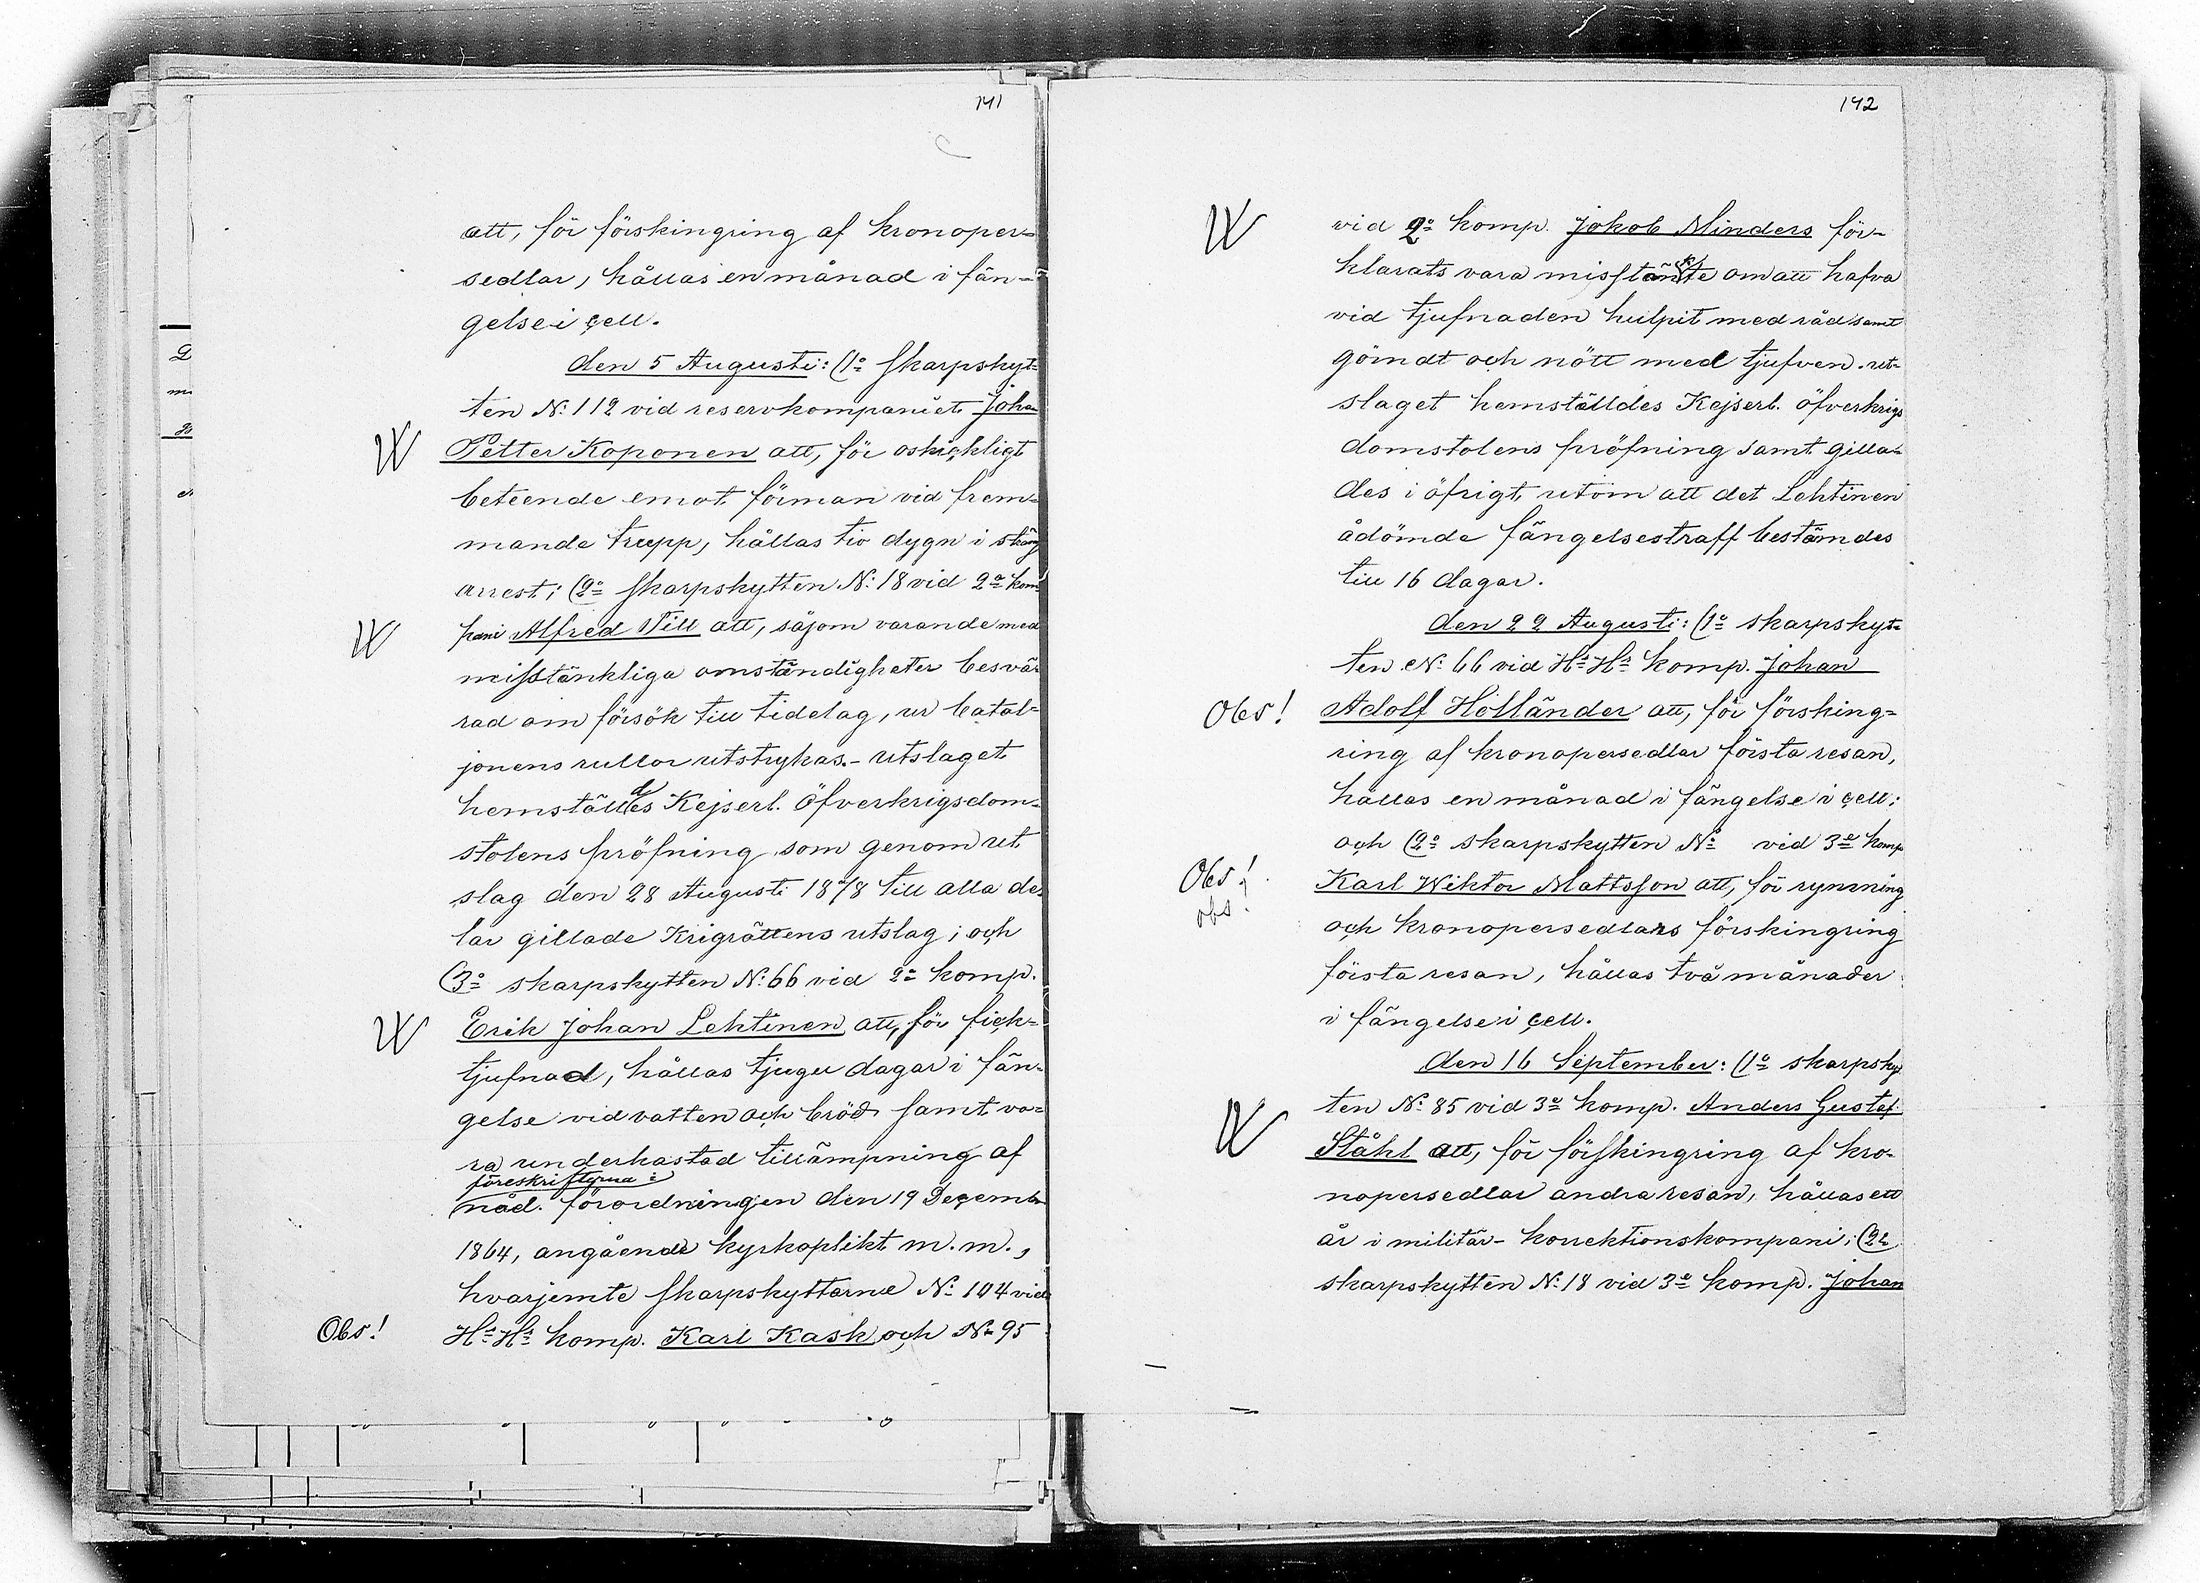 141
att, för förskingring af kronoper=
sedlar, hållas en månad i fän=
gelse i cell.
den 5 Augusti: (1o skarpskyt=
ten No 112 vid reservkompaniet Johan
W Petter Koponen att, för oskickligt
beteende emot förman vid frem=
mande trupp, hållas tio dygn i sträng
arrest; (2o skarpskytten No 18 vid 2a kom=
W pani Alfred Till att, såsom varande med
misstänkliga omständigheter besvä=
rad om försök till tidelag, ur batal=
jonens rullor utstrykas. - utslaget
hemställdes Kejserl. Öfverkrigsdom=
stolens pröfning, som genom ut
slag den 28 Augusti 1878 till alla de=
lar gillade Krigrättens utslag; och
(3o skarpskytten No 66 vid 2a komp.
W Erik Johan Lehtinen att, för fick=
tjufnad, hållas tjugu dagar i fän=
gelse vid vatten och bröd samt va=
ra underkastad tillämpning af
föreskrifterna i
nåd. förordningen den 19 December
1864, angående kyrkoplikt m. m.,
hvarjemte skarpskyttarne No 104 vid
Obs! Hs Hs komp. Karl Kask och No 95
142
W vid 2a komp. Jokob Minders för=
klarats vara misstänkte om att hafva
vid tjufnaden hulpit med råd samt
gömdt och nött med tjufven. ut=
slaget hemställdes Kejserl. öfverkrigs
domstolens pröfning samt gilla=
des i öfrigt, utom att det Lehtinen
ådömde fängelsestraff bestämdes
till 16 dagar.
den 22 Augusti: (1o skarpskyt=
ten No 66 vid Hs Hs komp. Johan
Obs! Adolf Holländer att, för försking=
ring af kronopersedlar första resan,
hållas en månad i fängelse i cell;
och (2o skarpskytten No vid 3e komp
Obs! Karl Wiktor Mattsson att, för rymning
obs!
och kronopersedlars förskingring
första resan, hållas två månader
i fängelse i cell.
den 16 September: (1o skarpskyt
ten No 85 vid 3e komp. Anders Gustaf
W Ståhl att, för förskingring af kro=
nopersedlar andra resan, hållas ett
år i militär- korrektionskompani; (2o
skarpskytten No 18 vid 3e komp. Johan